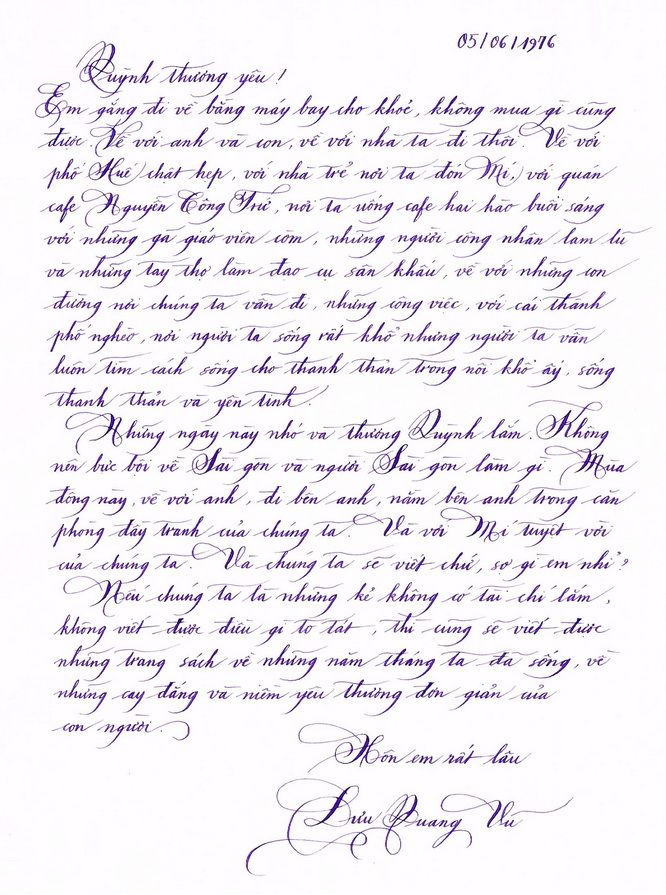 05/06/1976
Quỳnh thương yêu!
Em gắng đi về bằng máy bay cho khoẻ, không mua gì cũng
được. Về với anh và con, về với nhà ta đi thôi. Về với
phố Huế chật hẹp, với nhà trẻ nơi ta đón Mí, với quán
cafe Nguyễn Công Trứ, nơi ta uống cafe hai hào buổi sáng
với những gã giáo viên còm, những người công nhân lam lũ
và những tay thợ làm đạo cụ sân khấu, về với những con
đường nơi chúng ta vẫn đi, những công việc, với cái thành
phố nghèo, nơi người ta sống rất khổ nhưng người ta vẫn
luôn tìm cách sống cho thanh thản trong nỗi khổ ấy, sống
thanh thản và yên tĩnh.
Những ngày này nhớ và thương Quỳnh lắm. Không
nên bực bội về Sài gòn và người Sài gòn làm gì. Mùa
đông này, về với anh, đi bên anh, nằm bên anh trong căn
phòng đầy tranh của chúng ta. Và với Mí tuyệt vời
của chúng ta. Và chúng ta sẽ viết chứ, sợ gì em nhỉ?
Nếu chúng ta là những kẻ không có tài chi lắm,
không viết được điều gì to tát, thì cũng sẽ viết được
những trang sách về những năm tháng ta đã sống, về
những cay đắng và niềm yêu thương đơn giản của
con người.
Hôn em rất lâu
Lưu Quang Vũ